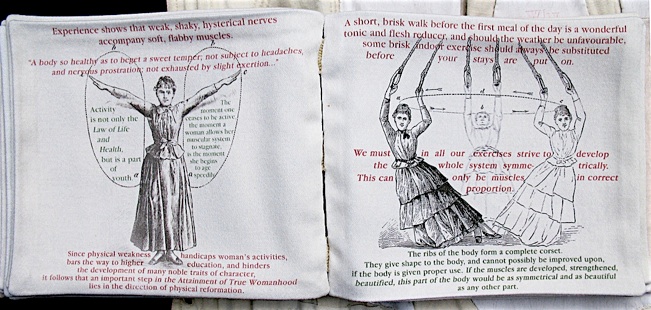 Experience shows that weak, shaky, hysterical nerves
accompany soft, flabby muscles.
"A body so healthy as to beget a sweet temper; not subject to headaches,
and nervous prostration; not exhausted by slight exertion..."
b
b
c
c
Activity
is not only the
Law of Life
and
Health,
but is a part
of
youth.
a
The
moment one
ceases to be active
the moment a
woman allows her
muscular system
to stagnate,
is the moment
she begins
to age
speedily.
a
Since physical weakness handicaps woman's activities,
bars the way to higher education, and hinders
the development of many noble traits of character,
it follows that an important step in the Attainment of True Womanhood
lies in the direction of physical reformation.
A short, brisk walk before the first meal of the day is a wonderful
tonic and flesh reducer, and should the weather be unfavourable,
some brisk indoor exercise should always be substituted
before your stays are put on.
We must in all our exercises strive to develop
the whole system symmetrically.
This can only be muscles in correct
proportion.
The ribs of the body form a complete corset.
They give shape to the body, and cannot possibly be improved upon,
if the body is given proper use. If the muscles are developed, strengthened,
beautified, this part of the body would be as symmetrical and as beautiful
as any other part.